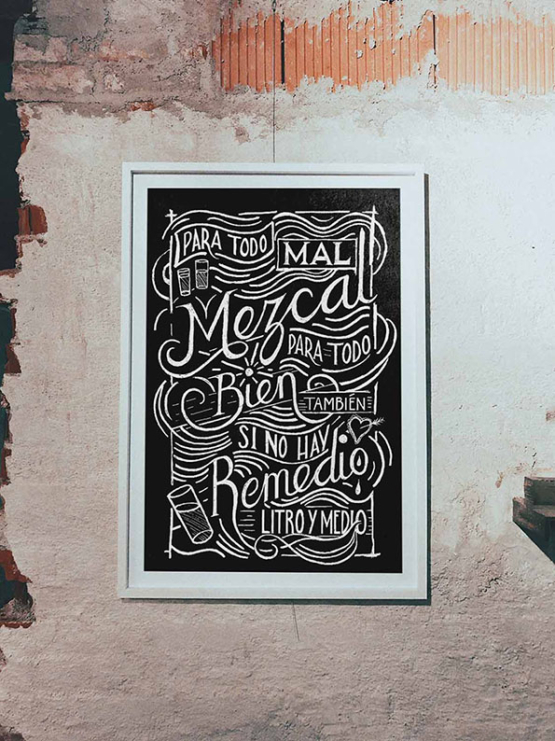 PARA TODO
MAL
Mezcal
PARA TODO
Bien
TAMBIÉN
SI NO HAY
Remedio
LITRO Y MEDIO